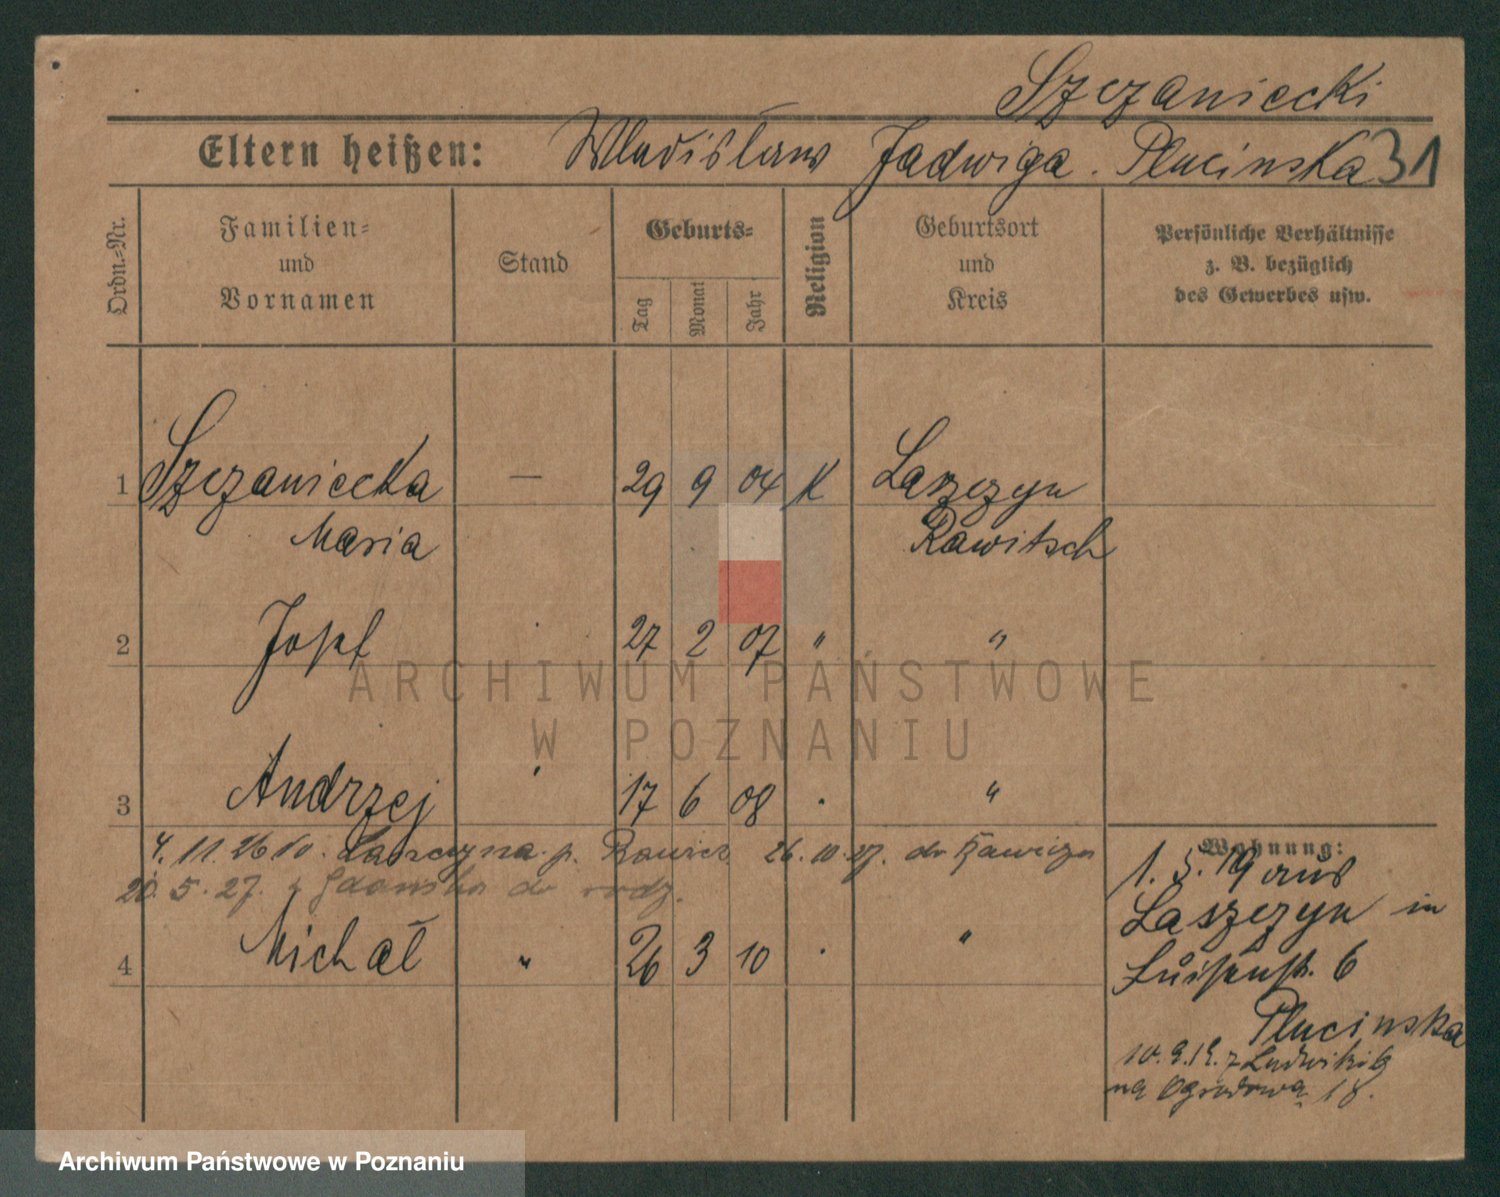 Szczaniecki
Eltern heißen: Wladislaus Jadwiga. Plucinska 31
Ordn.-Nr.
Familien-
und
Vornamen
Stand
Geburts-
Tag
Monat
Jahr
Religion
Geburtsort
und
Kreis
Persönliche Verhältnisse
z. B. bezüglich
des Gewerbes usw.
1 Szczaniecka — 29 9 04 K Laszczyn
Maria Rawitsch
2 Josef 27 2 07 " "
3 Andrzej 17 6 08 "
4.11.26 Laszczyna p. Rawicz 26.10.27. do
20.5.27. z Gdańska do rodz.
4 Michał " 26 3 10 "
Wohnung:
1.5.19 aus
Laszczyn in
Luisenstr. 6
Plucinska
10.9.19. z Ludwiki 6
na Ogrodową 18.
ARCHIWUM PAŃSTWOWE
W POZNANIU
Archiwum Państwowe w Poznaniu